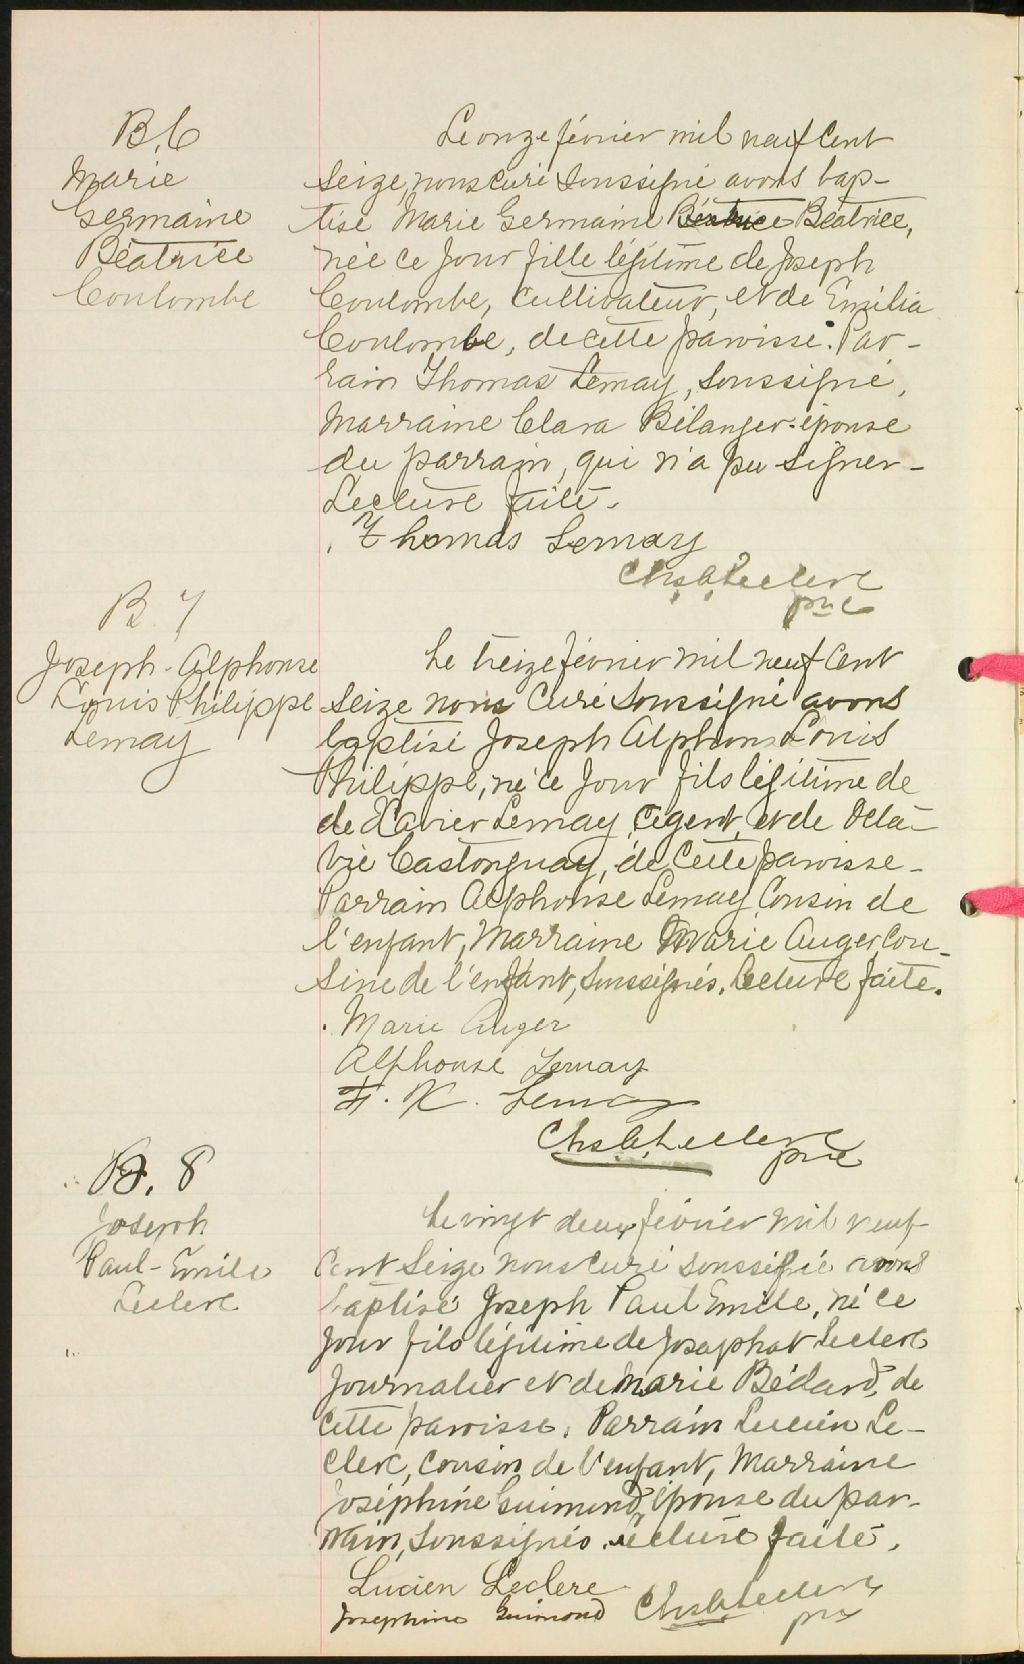 B. 6
Marie
Germaine
Béatrice
Coulombe
Le onze février mil neuf cent
seize, nous curé soussigné avons bap-
tisé Marie Germaine Béatrice Béatrice,
née ce jour fille légitime de Joseph
Coulombe, cultivateur, et de Emilia
Coulombe, de cette paroisse. Par-
rain Thomas Lemay, soussigné,
Marraine Clara Bélanger épouse
du parrain, qui n'a pu signer-
Lecture faite.
Thomas Lemay
Chs Leclerc
ptre
B. 7
Joseph-Alphonse
Louis Philippe
Lemay
Le treize février mil neuf cent
seize nous curé soussigné avons
baptisé Joseph Alphonse Louis
Philippe, né ce jour fils légitime de
de Xavier Lemay, agent, et de Octa-
vie Castonguay, de cette paroisse-
Parrain Alphonse Lemay, cousin de
l'enfant, Marraine Marie Auger, cou-
sine de l'enfant, soussignés. Lecture faite.
Marie Auger
Alphonse Lemay
F. X. Lemay
Chs Leclerc
ptre
B. 8
Joseph
Paul-Emile
Leclerc
Le vingt deux février mil neuf
cent seize nous curé soussigné avons
baptisé Joseph Paul Emile, né ce
jour fils légitime de Josaphat Leclerc
journalier et de Marie Bédard, de
cette paroisse. Parrain Lucien Le-
clerc, cousin de l'enfant, Marraine
Joséphine Guimond, épouse du par-
rain, soussignés. Lecture faite.
Lucien Leclerc
Josephine Guimond
Chs Leclerc
ptre